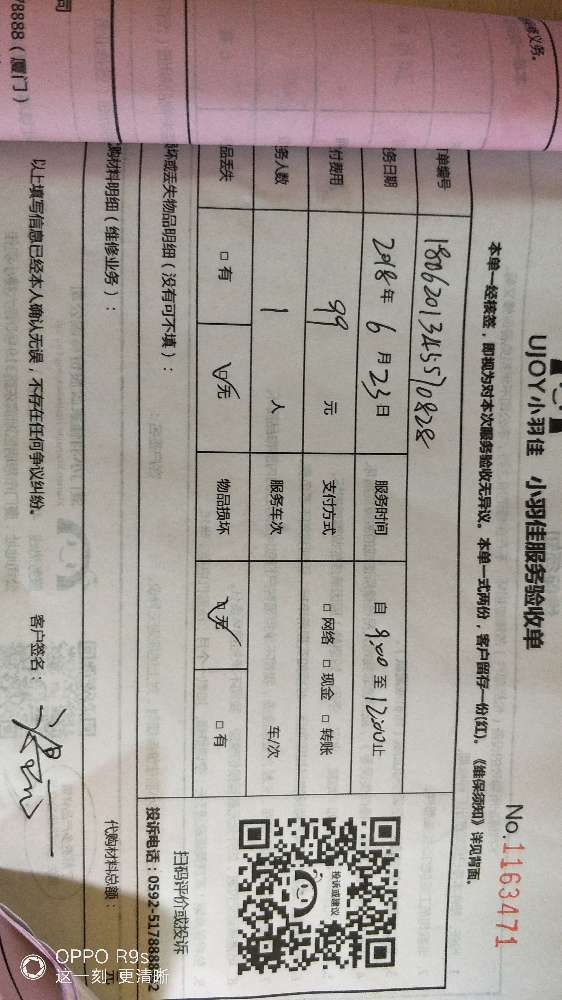 修义务。
司
78888（厦门）
UJOY小羽佳 小羽佳服务验收单
No.1163471
本单一经核签，即视为对本次服务验收无异议。本单一式两份，客户留存一份(红)。《维保须知》详见背面。
单编号 1806201345570828
务日期 2018年6月23日 服务时间 自9:00至12:00止
付费用 99元 支付方式 □网络 □现金 □转账
务人数 1人 服务车次 车/次
品丢失 □有 □无 物品损坏 □无 □有
投诉或建议
扫码评价或投诉
投诉电话：0592-5178888
坏或丢失物品明细（没有可不填）：
购材料明细（维修业务）：
代购材料总额： 元
以上填写信息已经本人确认无误，不存在任何争议纠纷。
客户签名：
OPPO R9s
这一刻 更清晰